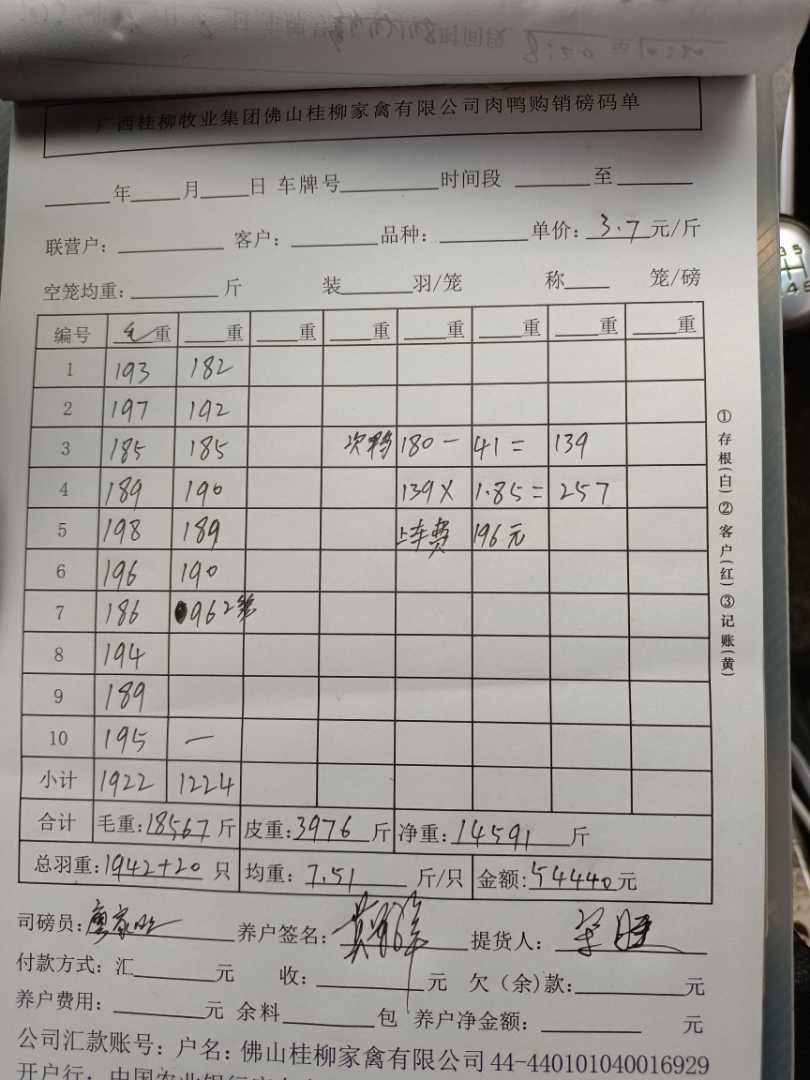 广西桂柳牧业集团佛山桂柳家禽有限公司肉鸭购销磅码单
年 月 日 车牌号 时间段 至
联营户: 客户: 品种: 单价: 3.7 元/斤
空笼均重: 斤 装 羽/笼 称 笼/磅
编号 毛重 重 重 重 重 重 重 重
1 193 182
2 197 192
3 185 185 次鸭 180 - 41 = 139
4 189 190 139 × 1.85 = 257
5 198 189 上车费 196元
6 196 190
7 186 96 2笼
8 194
9 189
10 195 —
小计 1922 1224
合计 毛重: 18567 斤 皮重: 3976 斤 净重: 14591 斤
总羽重: 1942+20 只 均重: 7.51 斤/只 金额: 54440 元
司磅员: 养户签名: 提货人:
付款方式: 汇 元 收: 元 欠(余)款: 元
养户费用: 元 余料 包 养户净金额: 元
公司汇款账号: 户名: 佛山桂柳家禽有限公司 44-440101040016929
开户行: 中国农业银行
①存根(白)②客户(红)③记账(黄)